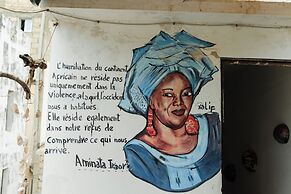 L'humiliation du continent
Africain ne réside pas
uniquement dans la
Violence, à laquelle l'occident
nous a habitués.
Elle réside également
dans notre refus de
Comprendre ce qui nous
arrivé.
Aminata Traoré